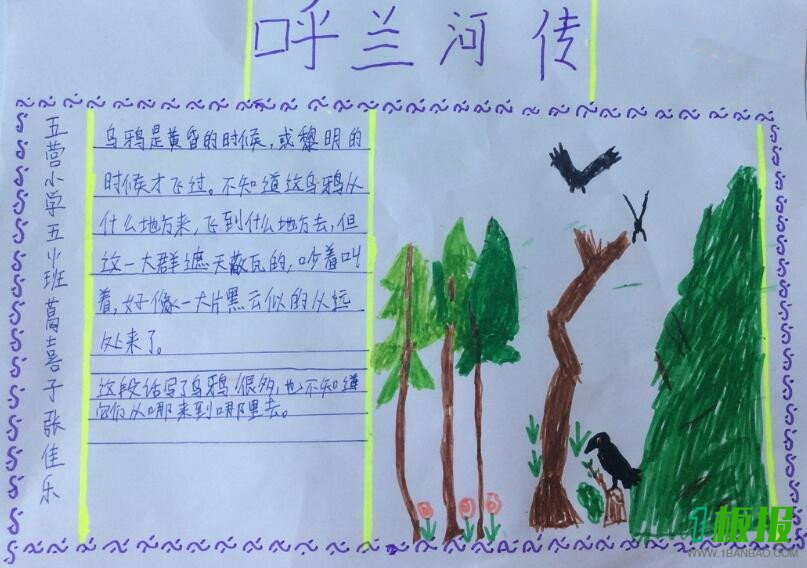 呼兰河传
五营小学五火班葛喜子张佳乐
乌鸦是黄昏的时候，或黎明的
时候才飞过。不知道这乌鸦从
什么地方来，飞到什么地方去，但
这一大群遮天蔽瓦的，吵着叫
着，好像一大片黑云似的从远
处来了。
这段话写了乌鸦很多，也不知道
它们从哪来到哪里去。
1板报
WWW.1BANBAO.COM